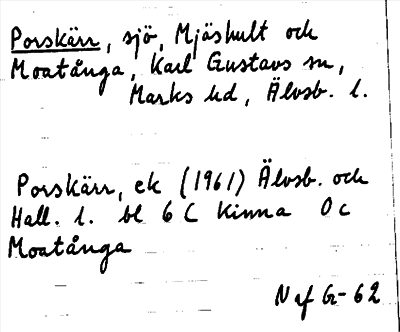 Porskärr, sjö, Mjäshult och
Moatånga, Karl Gustavs sn,
Marks hd, Älvsb. l.
Porskärr, ek (1961) Älvsb. och
Hall. l. bl 6 C Kinna 0 c
Moatånga
N af G-62